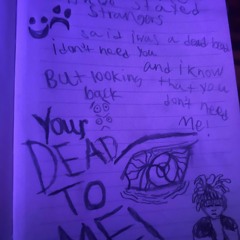 stayed
strangers
said i was a dead
I don't need you
and i know
But looking that you
back don't need
me!
Your
DEAD
TO
ME!